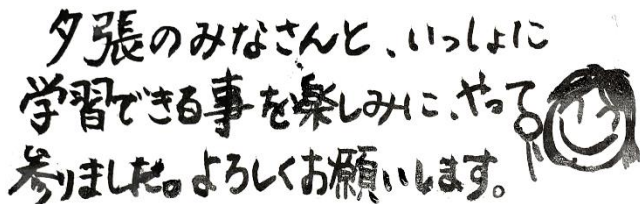 夕張のみなさんと、いっしょに
学習できる事を楽しみに、やって
参りました。よろしくお願いします。